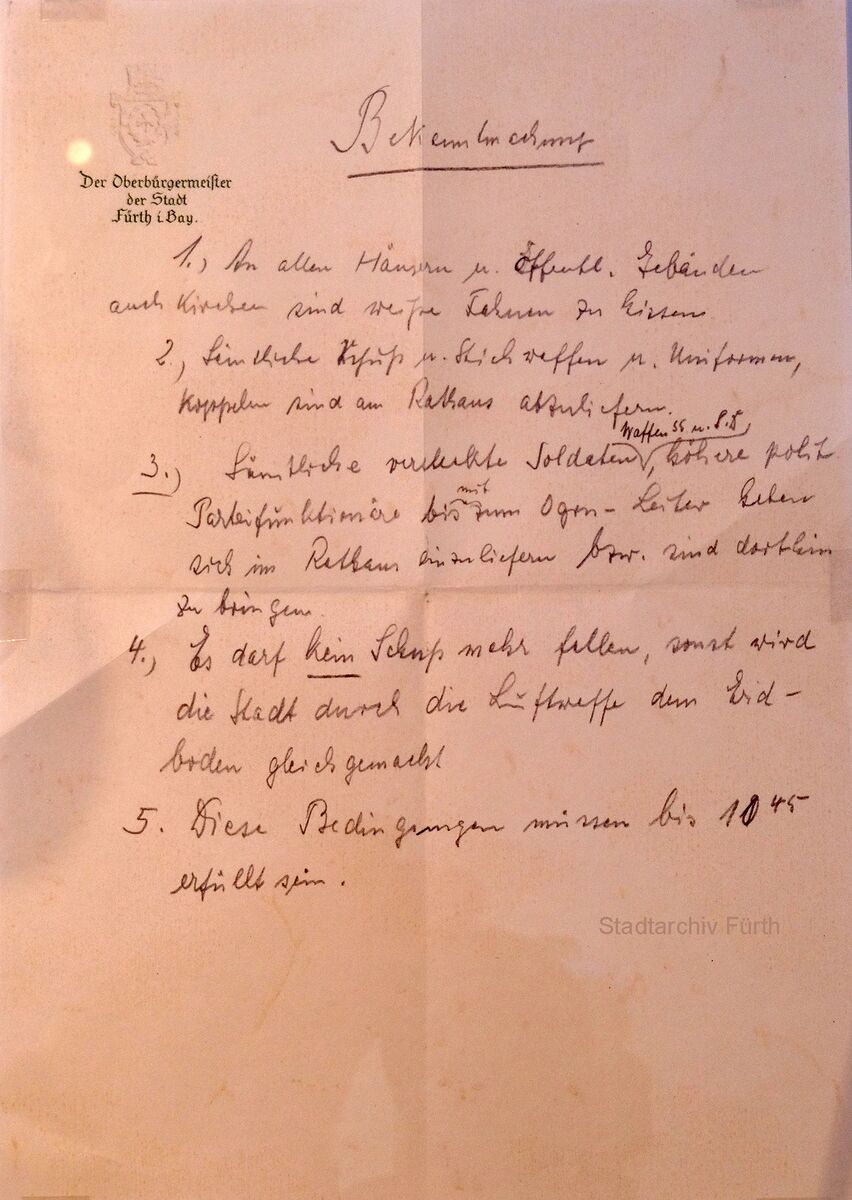 Der Oberbürgermeister
der Stadt
Fürth i. Bay.
Bekanntmachung
1.) An allen Häusern u. öffentl. Gebäuden
auch Kirchen sind weiße Fahnen zu hissen
2.) Sämtliche Schuß u. Stichwaffen u. Uniformen,
Koppeln sind am Rathaus abzuliefern.
Waffen SS u. S.D,
3.) Sämtliche versteckte Soldaten, höhere polit.
mit
Parteifunktionäre bis zum Ogru-Leiter haben
sich im Rathaus einzuliefern bzw. sind dorthin
zu bringen.
4.) Es darf kein Schuß mehr fallen, sonst wird
die Stadt durch die Luftwaffe dem Erd-
boden gleichgemacht
5. Diese Bedingungen müssen bis 10 45
erfüllt sein.
Stadtarchiv Fürth